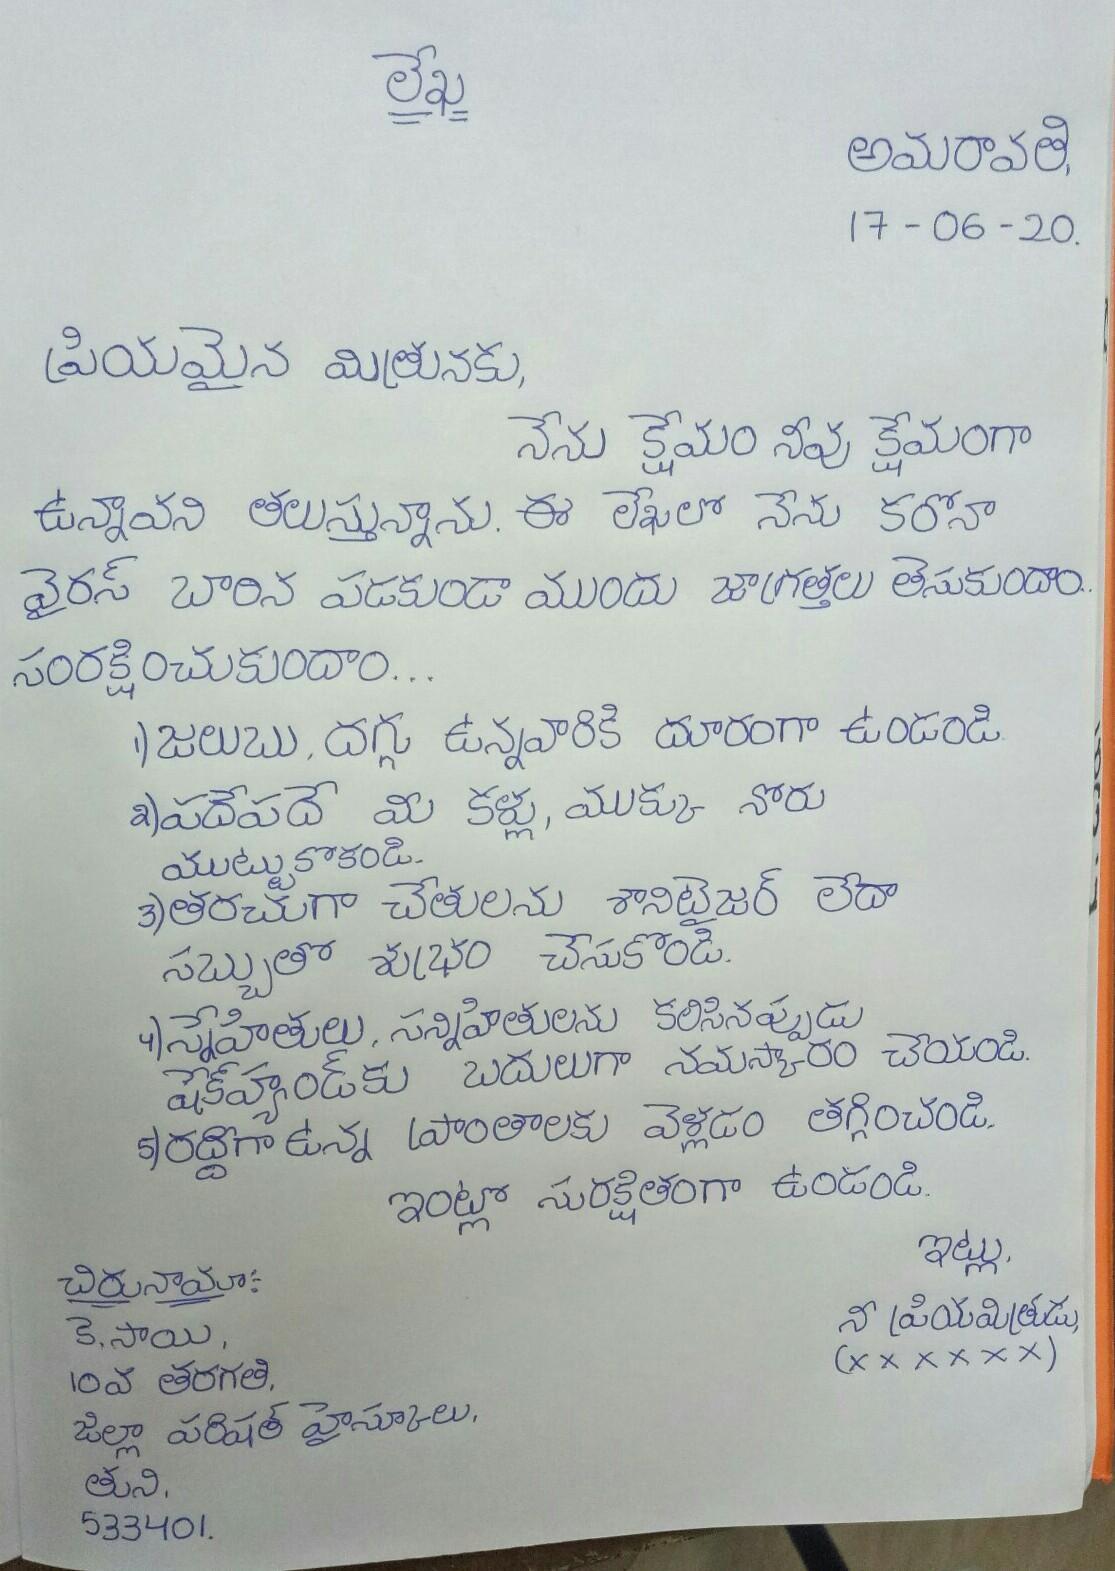 లేఖ
అమరావతి,
17-06-20.
ప్రియమైన మిత్రునకు,
నేను క్షేమం నీవు క్షేమంగా
ఉన్నావని తలుస్తున్నాను. ఈ లేఖలో నేను కరోనా
వైరస్ బారిన పడకుండా ముందు జాగ్రత్తలు తెసుకుందాం..
సంరక్షించుకుందాం...
1) జలుబు, దగ్గు ఉన్నవారికి దూరంగా ఉండండి.
2) పదేపదే మీ కళ్లు, ముక్కు నోరు
ముట్టుకొకండి.
3) తరచుగా చేతులను శానిటైజర్ లేదా
సబ్బుతో శుభ్రం చేసుకొండి.
4) స్నేహితులు, సన్నిహితులను కలిసినప్పుడు
షేక్‌హ్యాండ్‌కు బదులుగా నమస్కారం చెయండి.
5) రద్దీగా ఉన్న ప్రాంతాలకు వెళ్లడం తగ్గించండి.
ఇంట్లో సురక్షితంగా ఉండండి.
ఇట్లు,
నీ ప్రియమిత్రుడు,
(x x x x x x)
చిరునామా:-
కె. సాయి,
10వ తరగతి,
జిల్లా పరిషత్ హైస్కూలు,
తుని,
533401.